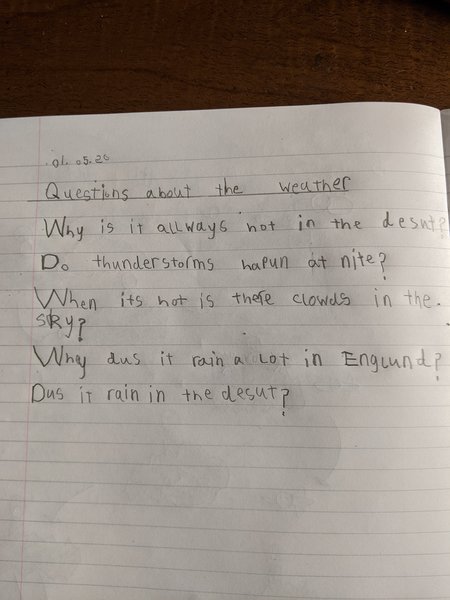 01.05.20
Questions about the weather
Why is it allways hot in the desut?
Do thunderstorms hapun at nite?
When its hot is there clowds in the
sky?
Why dus it rain a lot in Englund?
Dus it rain in the desut?